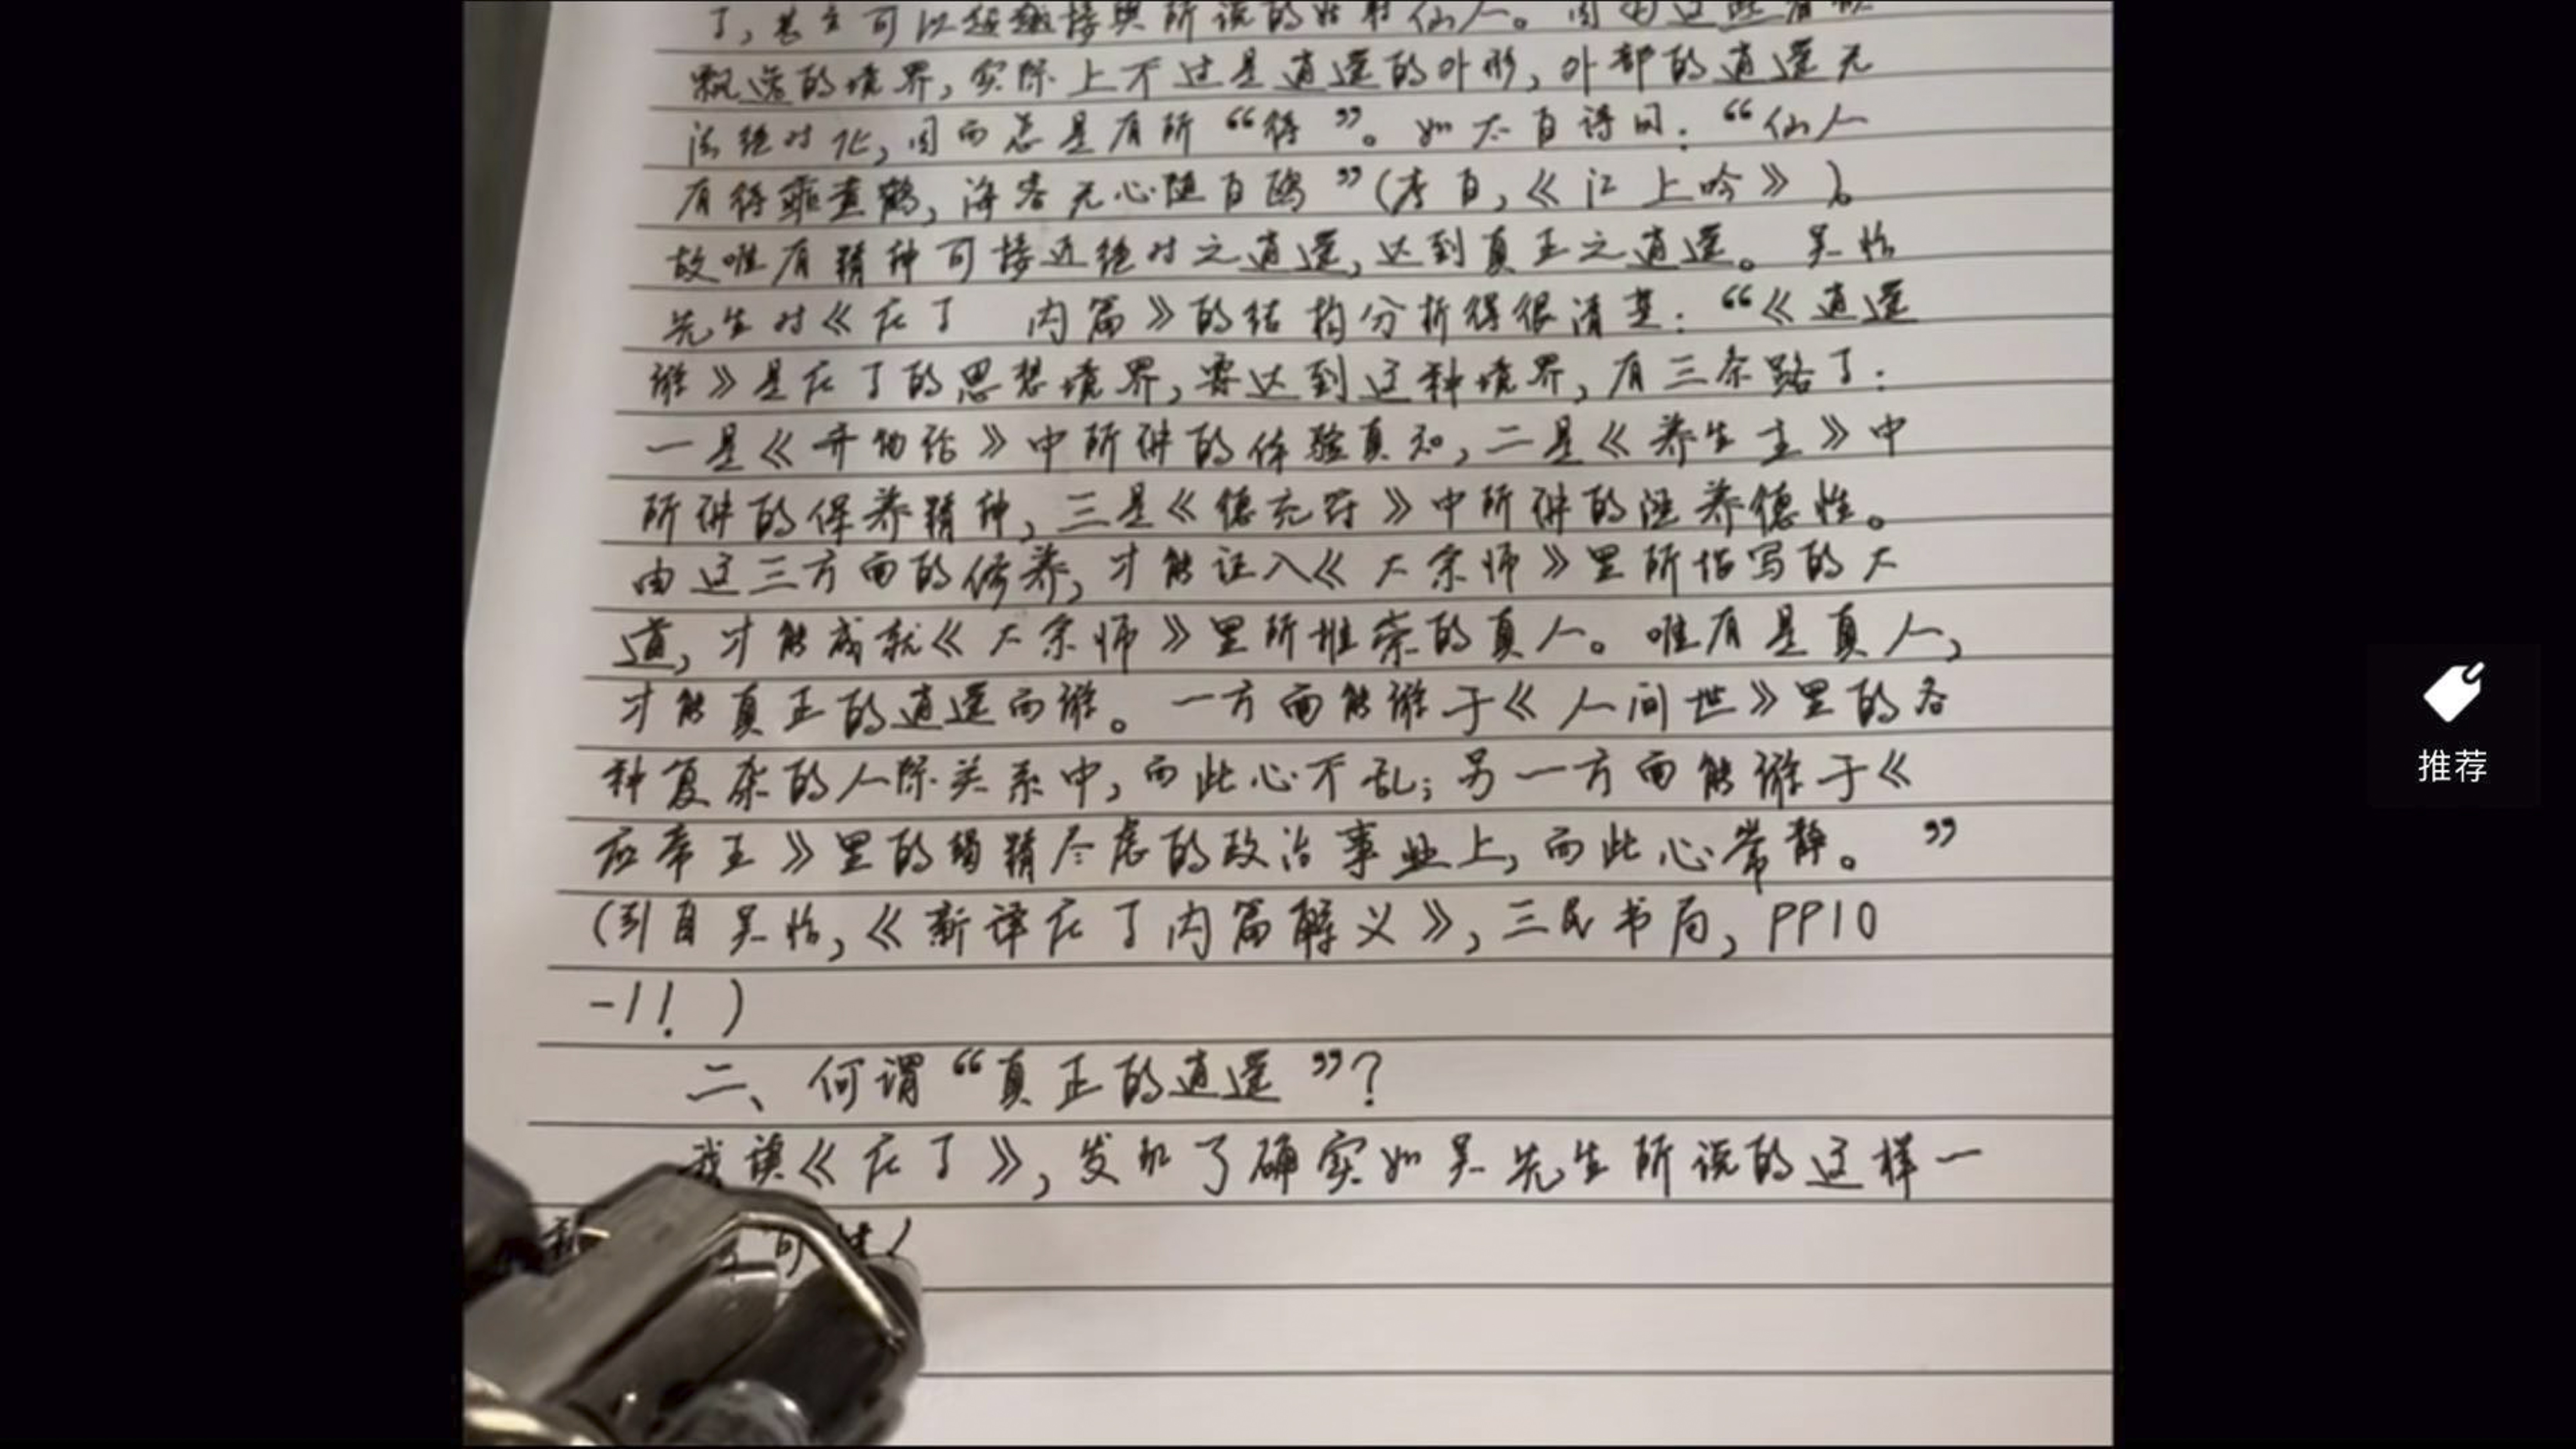 了，甚至可以超越接舆所说的姑射仙人。因为这些看似
飘逸的境界，实际上不过是逍遥的外形，外部的逍遥无
法绝对化，因而总是有所“待”。如太白诗曰：“仙人
有待乘黄鹤，海客无心随白鸥”（李白，《江上吟》）。
故唯有精神可接近绝对之逍遥，达到真正之逍遥。吴怡
先生对《庄子 内篇》的结构分析得很清楚：“《逍遥
游》是庄子的思想境界，要达到这种境界，有三条路子：
一是《齐物论》中所讲的体验真知，二是《养生主》中
所讲的保养精神，三是《德充符》中所讲的涵养德性。
由这三方面的修养，才能证入《大宗师》里所描写的大
道，才能成就《大宗师》里所推崇的真人。唯有是真人，
才能真正的逍遥而游。一方面能游于《人间世》里的各
种复杂的人际关系中，而此心不乱；另一方面能游于《
应帝王》里的竭精尽虑的政治事业上，而此心常静。”
（引自吴怡，《新译庄子内篇解义》，三民书局，PP10
-11）
二、何谓“真正的逍遥”？
我读《庄子》，发现了确实如吴先生所说的这样一
推荐